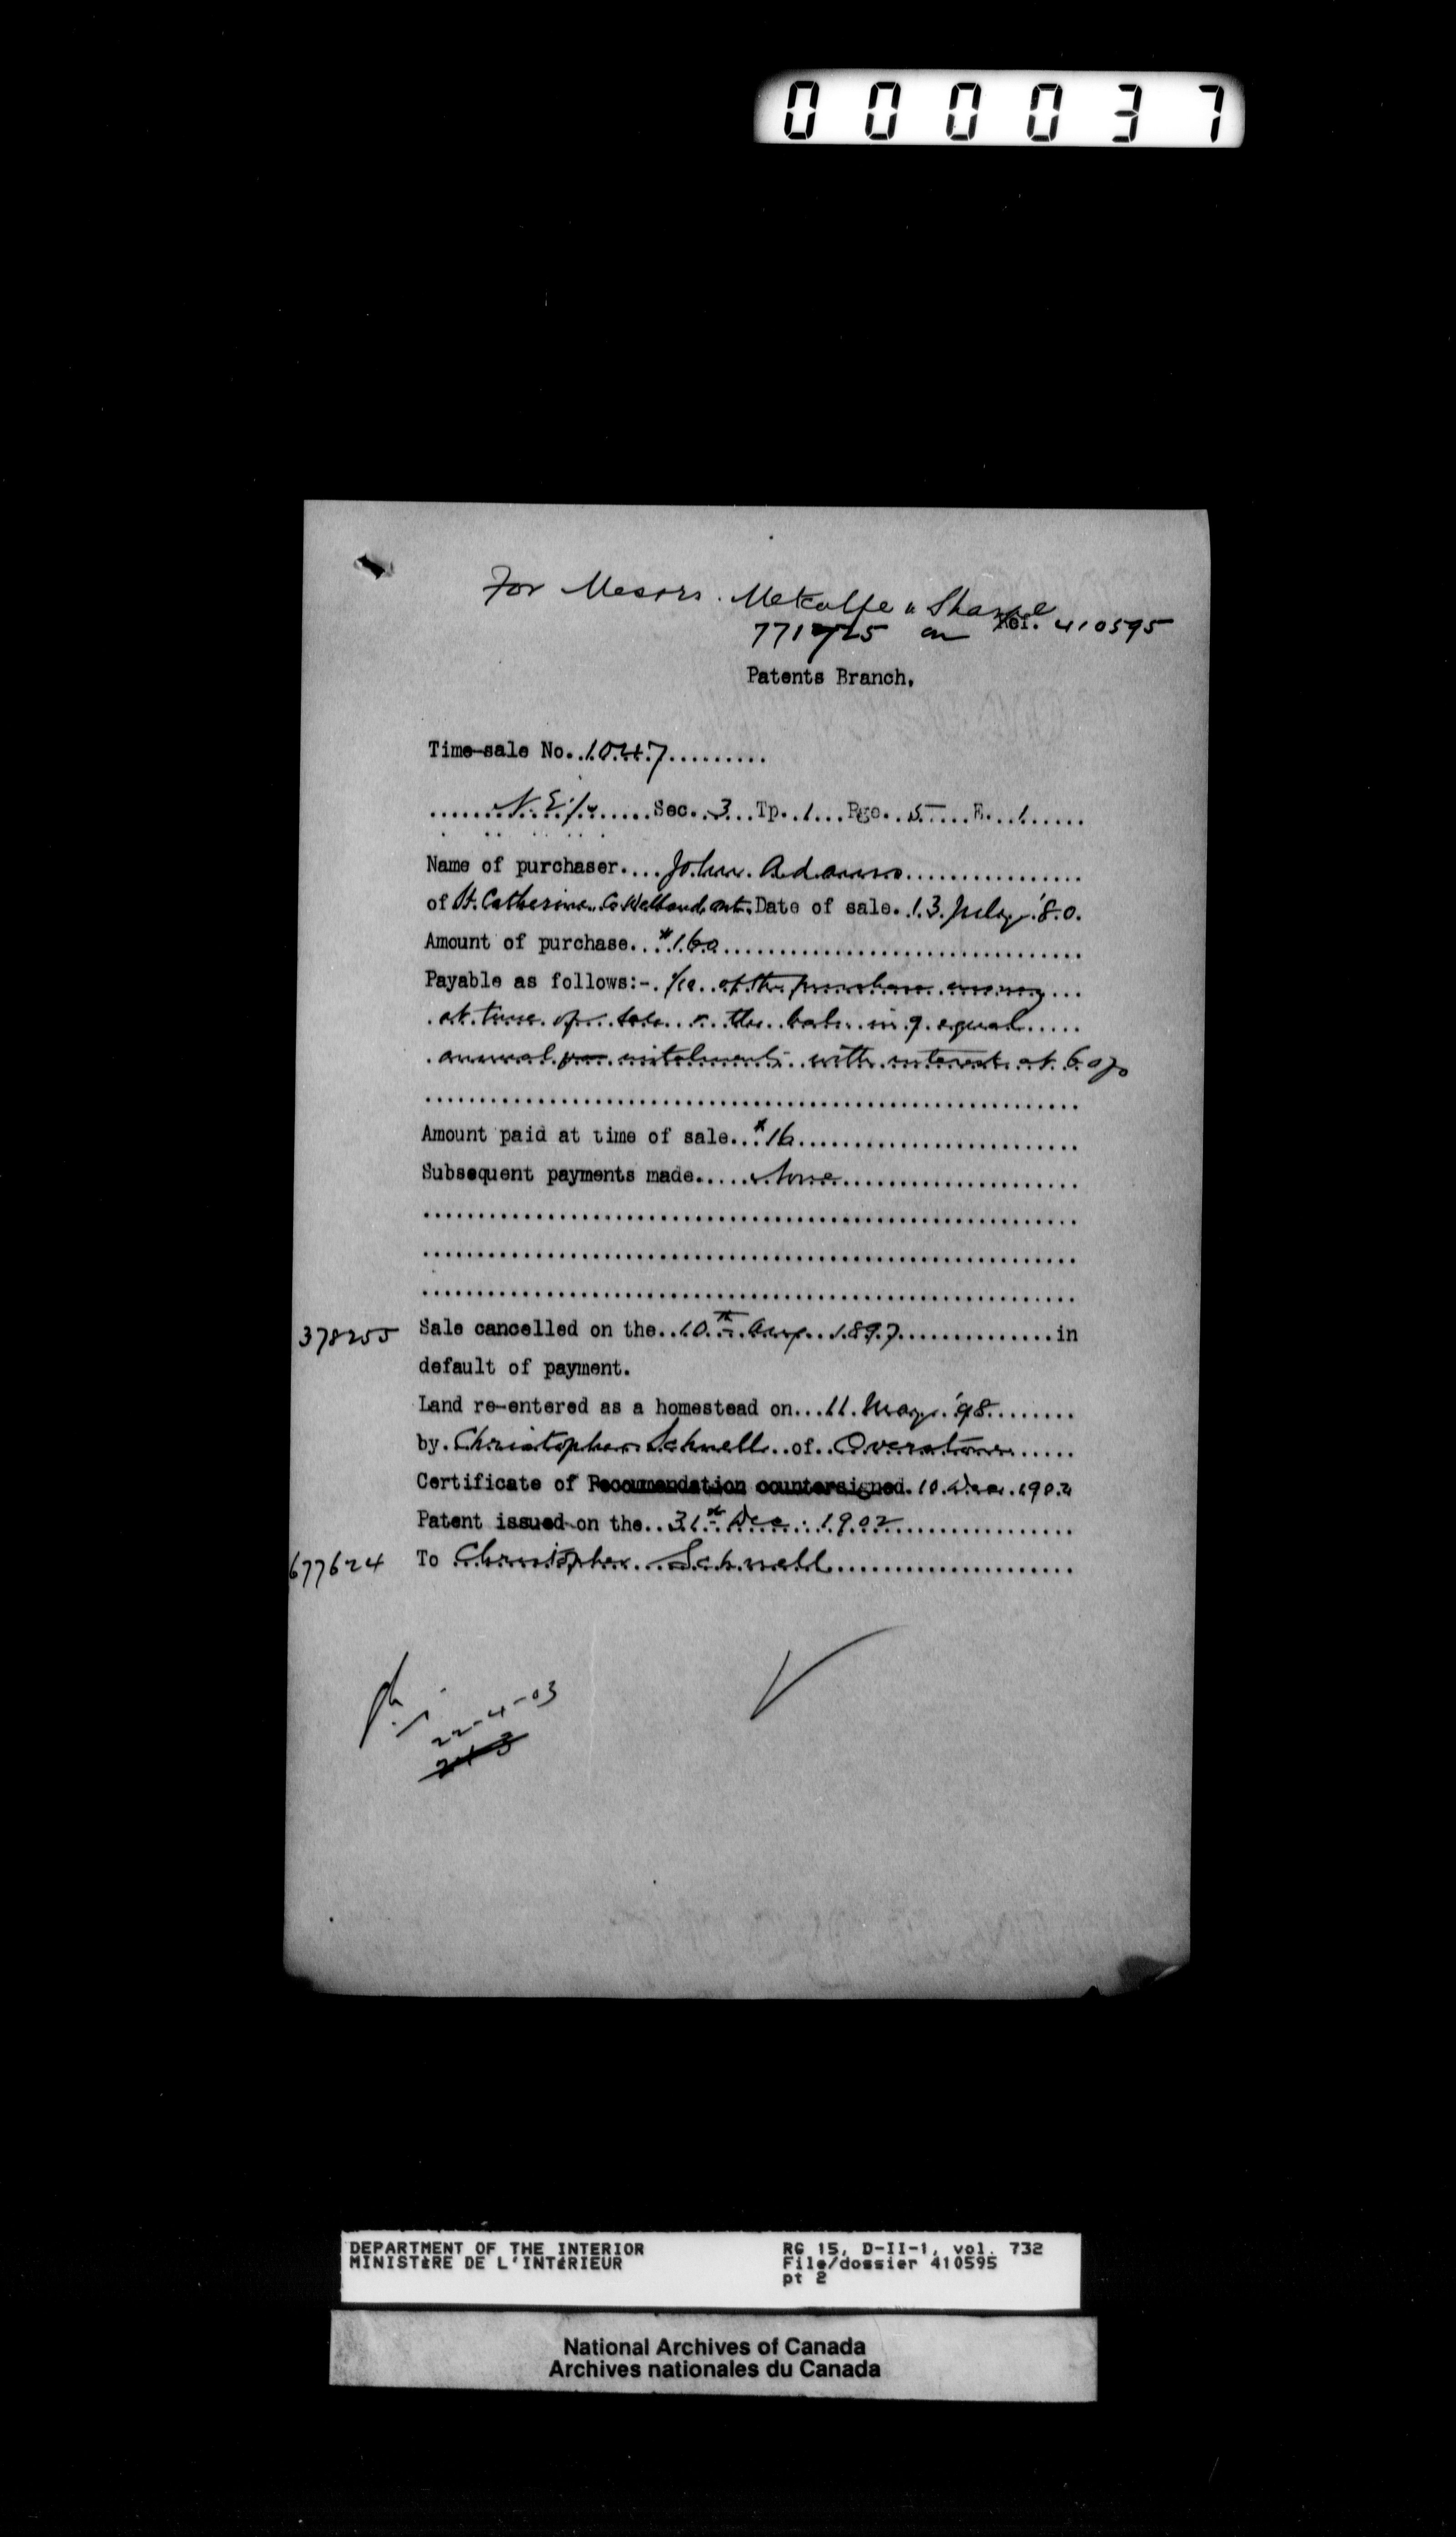 000037
For Messrs. Metcalfe & Sharpe
771725 on Ref. 410595
Patents Branch.
Time-sale No. 1047
N.E.¼ Sec. 3 Tp. 1 Rge. 5 E. 1
Name of purchaser.... John Adams
of St. Catherine Co Welland Ont. Date of sale. 13 July '80.
Amount of purchase. $160
Payable as follows:- 1/10 of the purchase money
at time of sale & the bal. in 9 equal
annual instalments with interest at 6 o/o
Amount paid at time of sale. $16
Subsequent payments made..... None
378255 Sale cancelled on the 10th Aug. 1897 in
default of payment.
Land re-entered as a homestead on... 11 May '98
by Christopher Schnell of Overstone
Certificate of Recommendation countersigned. 10 Dec. 1902
Patent issued on the 31st Dec. 1902
677624 To Christopher Schnell
22-4-03
DEPARTMENT OF THE INTERIOR
MINISTÈRE DE L'INTÉRIEUR
RG 15, D-II-1, vol. 732
File/dossier 410595
pt 2
National Archives of Canada
Archives nationales du Canada